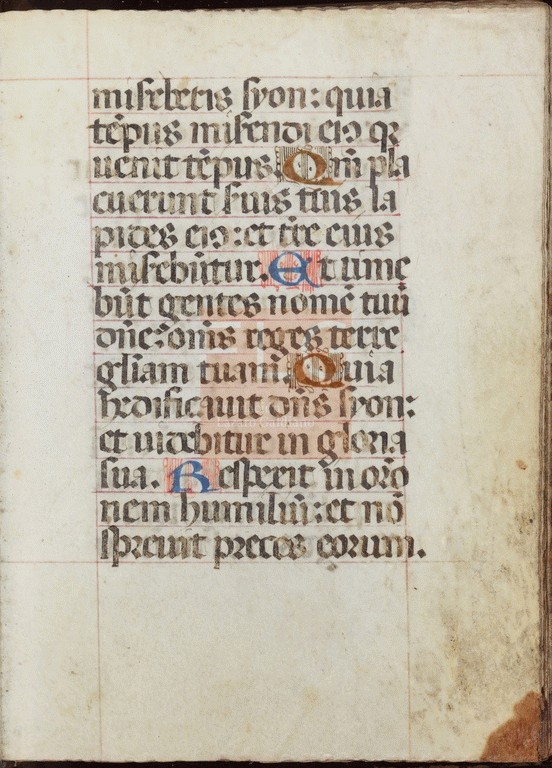 miseberis syon: quia
te᷒pus misendi eiꝯ qꝛ
uenit te᷒pus. Qm̄ pla
cuerunt suis tuis la
pides eiꝯ: et tr̄e eius
misebūtur. Et time
būt gentes nomē tuū
dn̄e: om̄s reges terre
gl̄iam tuam. Quia
hedificauit dn̄s syon:
et uidebitur in gloria
sua. Respexit in oꝛō
nem humiliū: et nō
spreuit preces eorum.